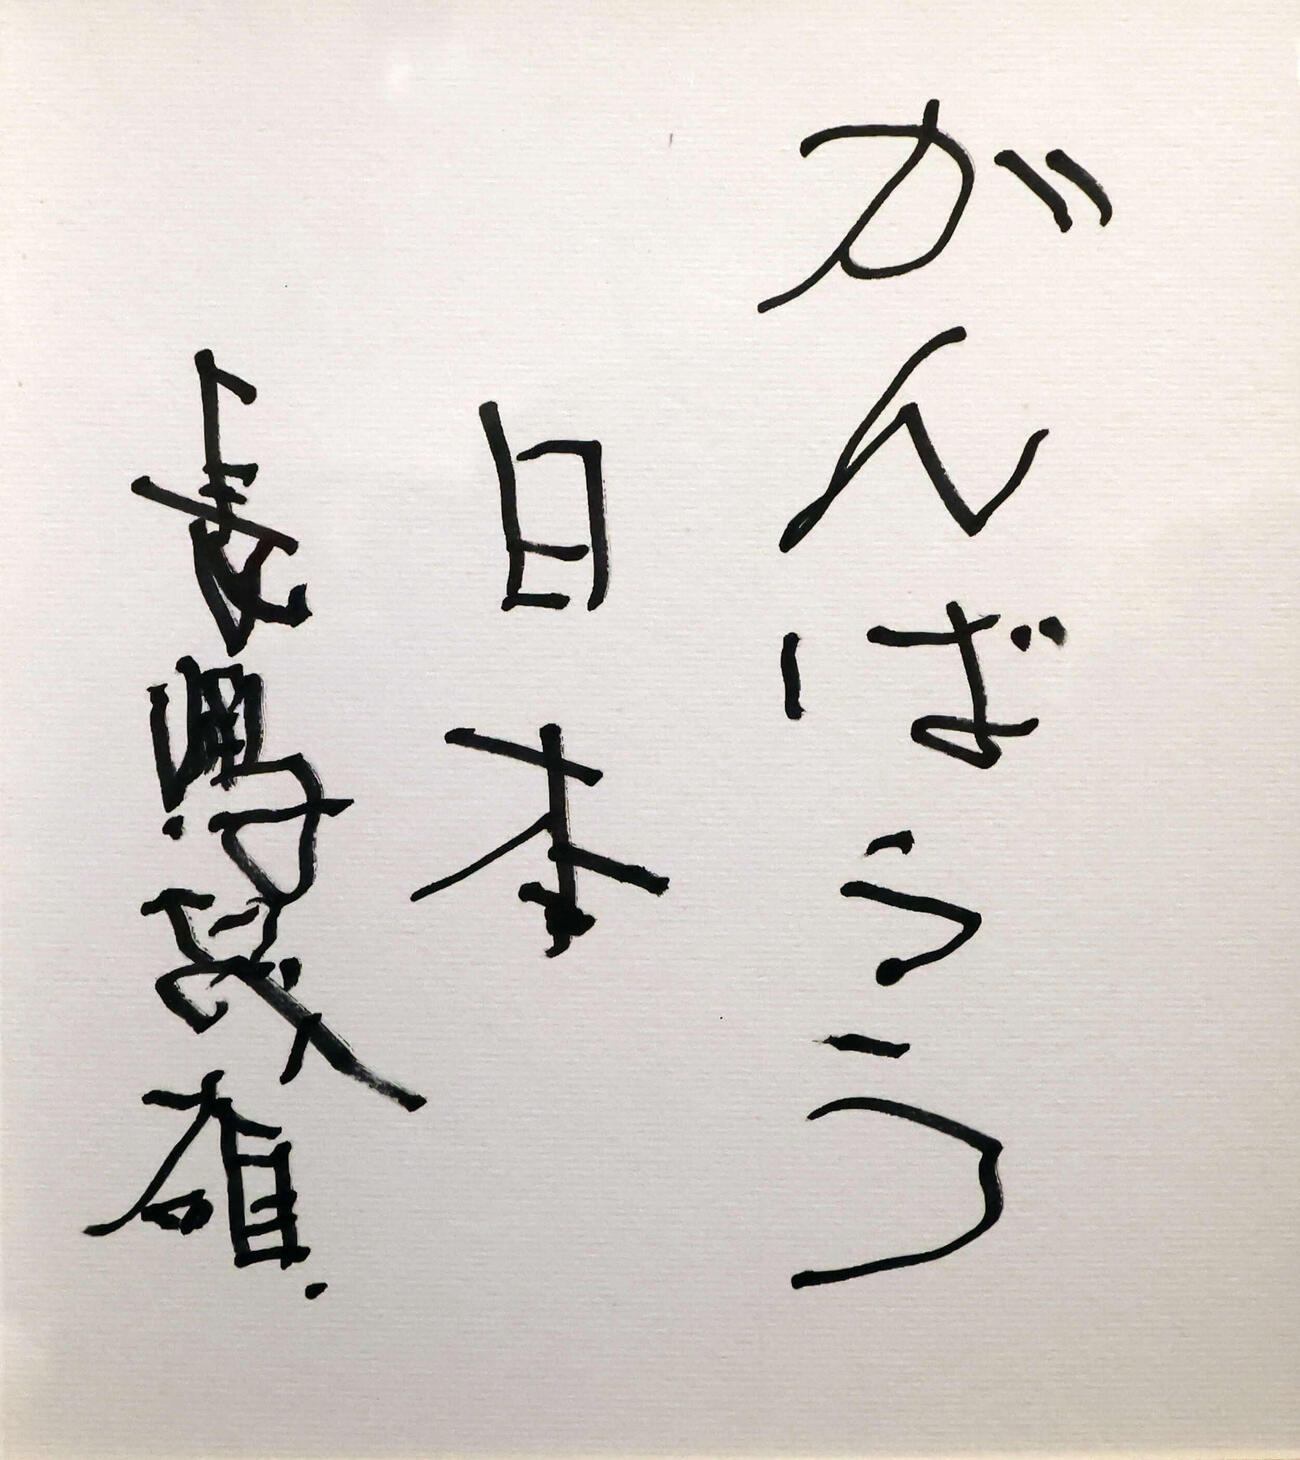 がんばらう
日本
長嶋茂雄